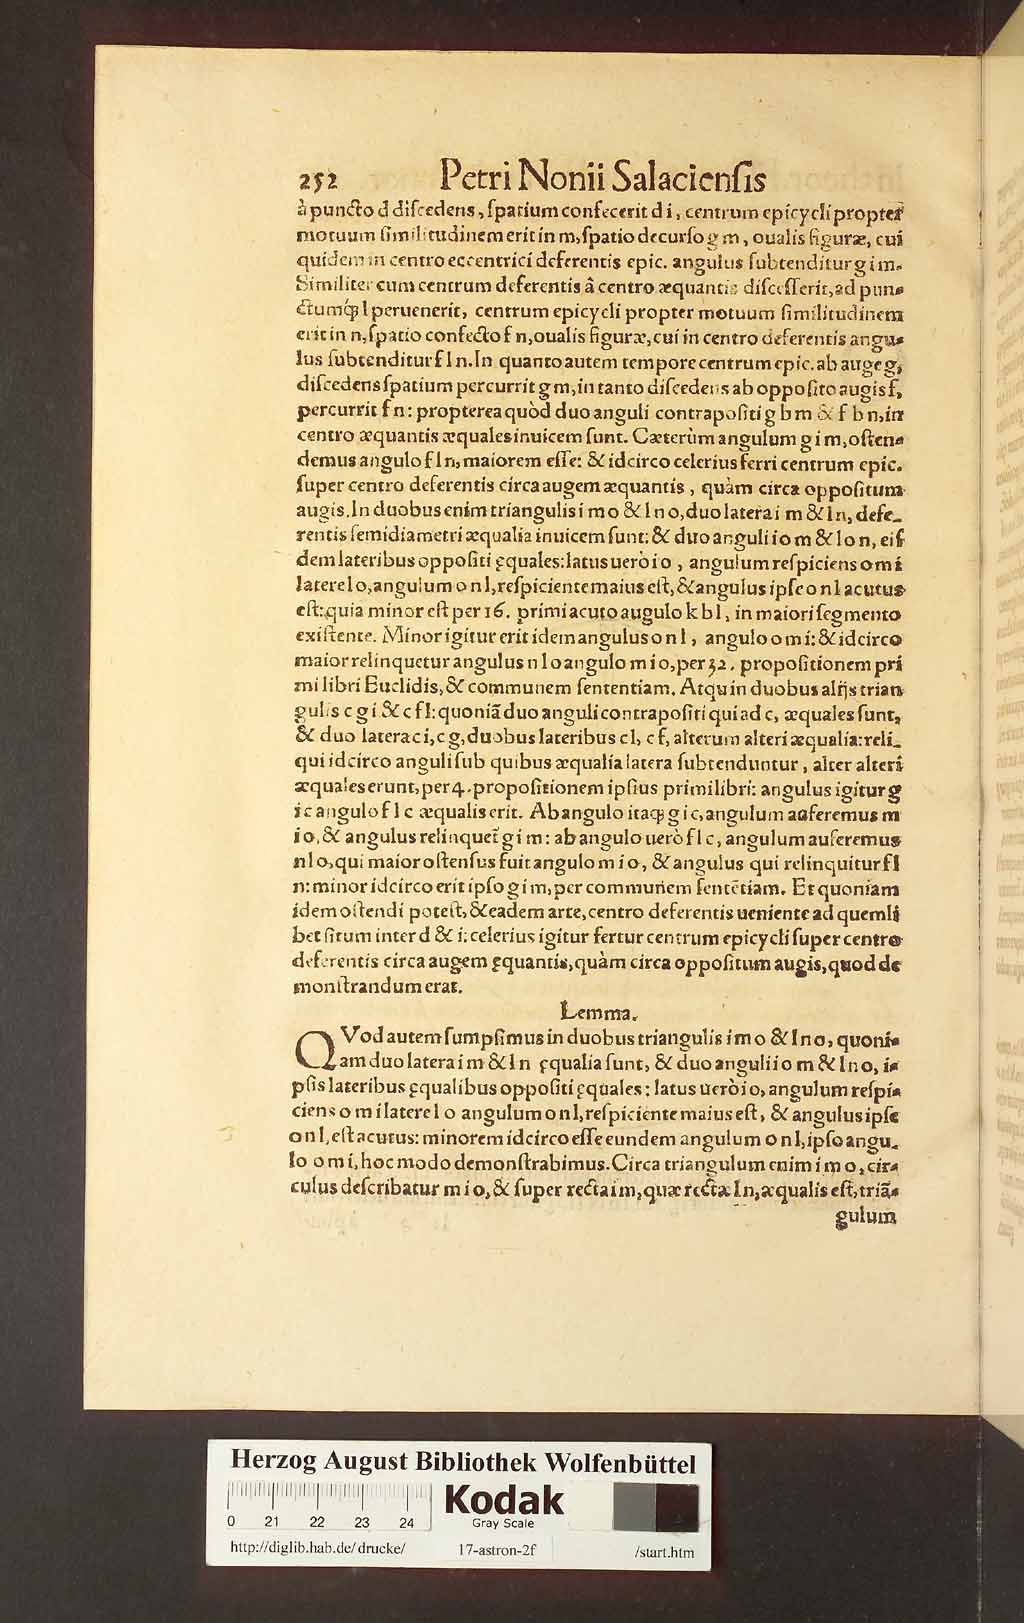 252 Petri Nonii Salaciensis
à puncto d discedens, spatium confecerit d i, centrum epicycli propter
motuum similitudinem erit in m, spatio decurso g m, oualis figuræ, cui
quidem in centro eccentrici deferentis epic. angulus subtenditur g i m.
Similiter cum centrum deferentis â centro æquantis discesserit, ad pun-
ctumq́ l peruenerit, centrum epicycli propter motuum similitudinem
erit in n, spatio confecto f n, oualis figuræ, cui in centro deferentis angu-
lus subtenditur f l n. In quanto autem tempore centrum epic. ab auge g,
discedens spatium percurrit g m, in tanto discedens ab opposito augis f,
percurrit f n: propterea quòd duo anguli contrapositi g b m & f b n, in
centro æquantis æquales inuicem sunt. Cæterùm angulum g i m, osten-
demus angulo f l n, maiorem esse: & idcirco celerius ferri centrum epic.
super centro deferentis circa augem æquantis, quàm circa oppositum
augis. In duobus enim triangulis i m o & l n o, duo latera i m & l n, defe-
rentis semidiametri æqualia inuicem sunt: & duo anguli i o m & l o n, eis
dem lateribus oppositi ęquales: latus uerò i o, angulum respiciens o m i
latere l o, angulum o n l, respiciente maius est, & angulus ipse o n l acutus
est: quia minor est per 16. primi acuto augulo k b l, in maiori segmento
existente. Minor igitur erit idem angulus o n l, angulo o m i: & idcirco
maior relinquetur angulus n l o angulo m i o, per 32. propositionem pri
mi libri Euclidis, & communem sententiam. Atqui in duobus alijs trian
gulis c g i & c f l: quoniã duo anguli contrapositi qui ad c, æquales sunt,
& duo latera c i, c g, duobus lateribus c l, c f, alterum alteri æqualia: reli-
qui idcirco anguli sub quibus æqualia latera subtenduntur, alter alteri
æquales erunt, per 4. propositionem ipsius primi libri: angulus igitur g
i c angulo f l c æqualis erit. Ab angulo itaq; g i c, angulum auferemus m
i o, & angulus relinquet̃ g i m: ab angulo uerò f l c, angulum auferemus
n l o, qui maior ostensus fuit angulo m i o, & angulus qui relinquitur f l
n: minor idcirco erit ipso g i m, per communem sentẽtiam. Et quoniam
idem ostendi potest, & eadem arte, centro deferentis ueniente ad quemli
bet situm inter d & i: celerius igitur fertur centrum epicycli super centro
deferentis circa augem ęquantis, quàm circa oppositum augis, quod de
monstrandum erat.
Lemma.
QVod autem sumpsimus in duobus triangulis i m o & l n o, quoni-
am duo latera i m & l n ęqualia sunt, & duo anguli i o m & l n o, i-
psis lateribus ęqualibus oppositi ęquales: latus uerò i o, angulum respi-
ciens o m i latere l o angulum o n l, respiciente maius est, & angulus ipse
o n l, est acutus: minorem idcirco esse eundem angulum o n l, ipso angu-
lo o m i, hoc modo demonstrabimus. Circa triangulum enim i m o, cir-
culus describatur m i o, & super recta i m, quæ rectæ l n, æqualis est, triã-
gulum
Herzog August Bibliothek Wolfenbüttel
0 21 22 23 24
Kodak
Gray Scale
http://diglib.hab.de/drucke/ 17-astron-2f /start.htm